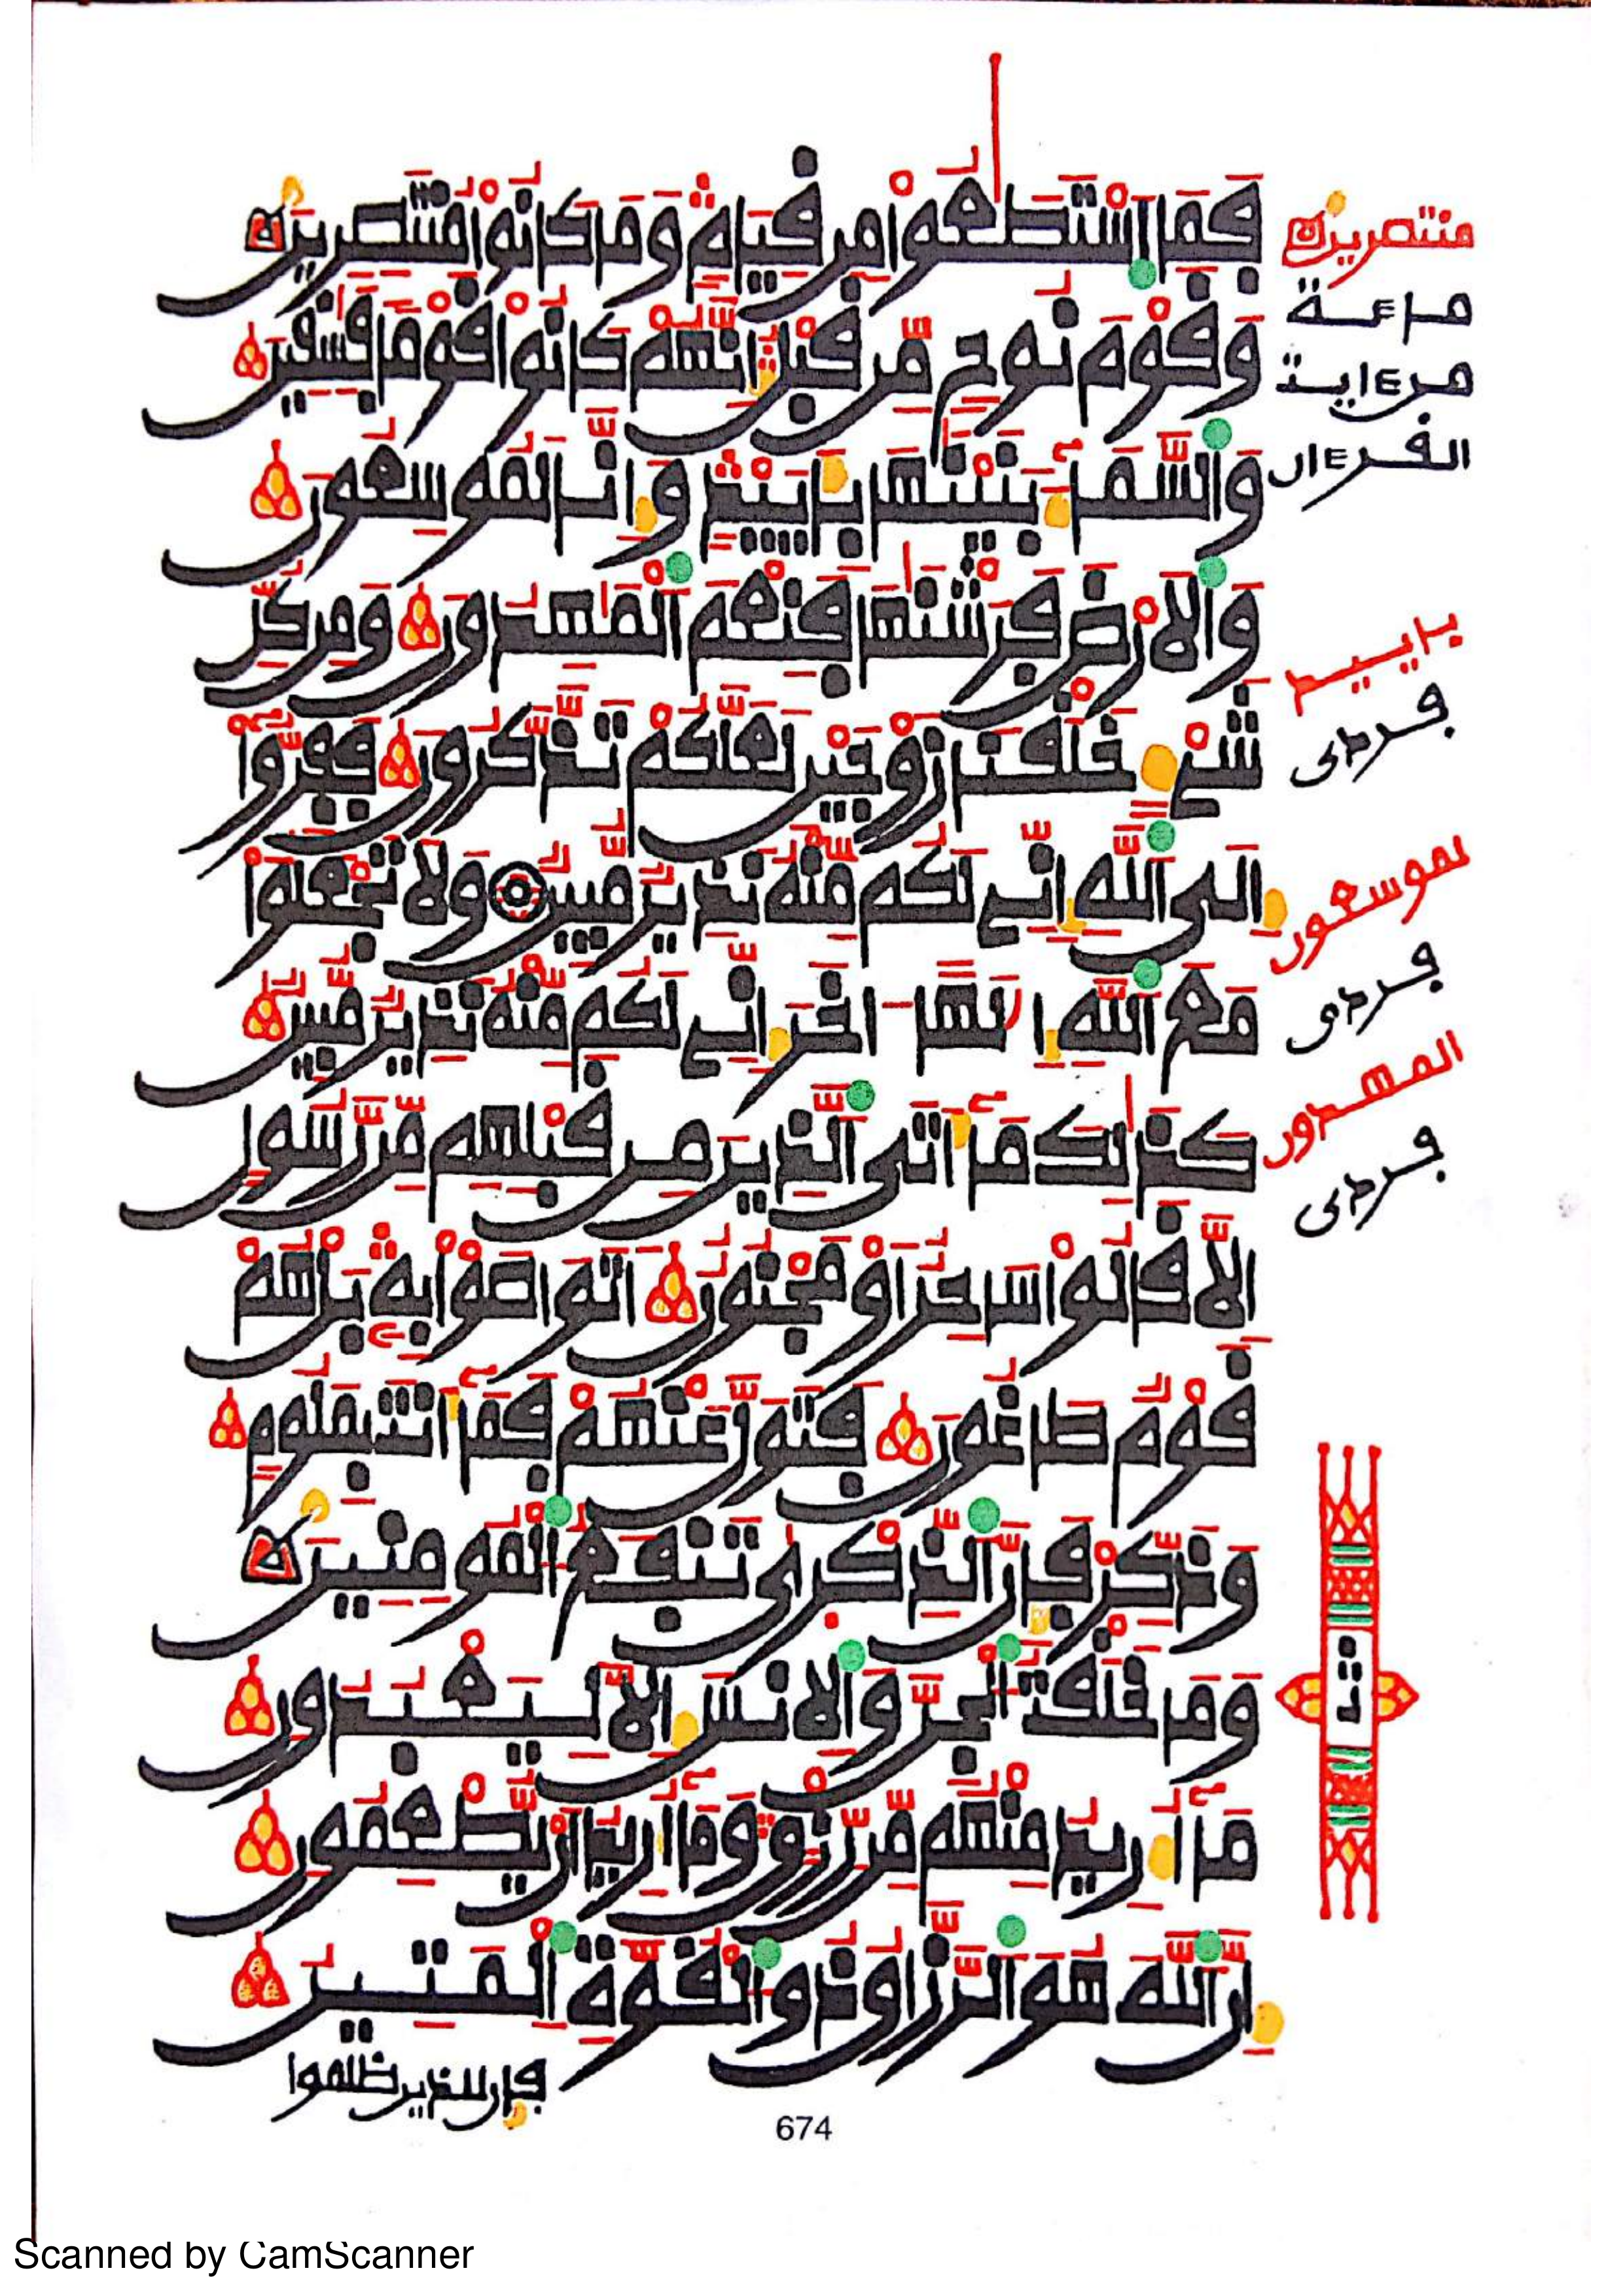 فَمَا اَسْتَطَٰعُواْ مِن قِيَامٖ وَمَا كَانُواْ مُنتَصِرِينَ
وَقَوْمَ نُوحٖ مِّن قَبْلُ إِنَّهُمْ كَانُواْ قَوْماٗ فَٰسِقِينَ
وَالسَّمَآءَ بَنَيْنَٰهَا بِأَيْيْدٖ وَإِنَّا لَمُوسِعُونَ
وَالَارْضَ فَرَشْنَٰهَا فَنِعْمَ الْمَٰهِدُونَ وَمِن كُلِّ
شَےْءٍ خَلَقْنَا زَوْجَيْنِ لَعَلَّكُمْ تَذَّكَّرُونَ فَفِرُّوٓاْ
إِلَى اَللَّهِ إِنِّے لَكُم مِّنْهُ نَذِيرٞ مُّبِينٞ وَلَا تَجْعَلُواْ
مَعَ اَللَّهِ إِلَٰهاً اخَرَ إِنِّے لَكُم مِّنْهُ نَذِيرٞ مُّبِينٞ
كَذَٰلِكَ مَآ أَتَى اَلذِينَ مِن قَبْلِهِم مِّن رَّسُولٍ
اِلَّا قَالُواْ سَاحِرٌ اَوْ مَجْنُونٌ اَتَوَاصَوْاْ بِهِۦ بَلْ هُمْ
قَوْمٞ طَاغُونَ فَتَوَلَّ عَنْهُمْ فَمَآ أَنتَ بِمَلُومٖ
وَذَكِّرْ فَإِنَّ اَلذِّكْرَىٰ تَنفَعُ الْمُومِنِينَ
وَمَا خَلَقْتُ الْجِنَّ وَالِانسَ إِلَّا لِيَعْبُدُونِ
مَآ أُرِيدُ مِنْهُم مِّن رِّزْقٖ وَمَآ أُرِيدُ أَنْ يُّطْعِمُونِ
إِنَّ اَللَّهَ هُوَ اَلرَّزَّاقُ ذُو اُلْقُوَّةِ اِلْمَتِينُ
فإن للذين ظلموا
منتصرين
ماعة
من ءاية
القرءان
بأييد
فردى
لموسعون
فردى
المهدون
فردى
674
Scanned by CamScanner